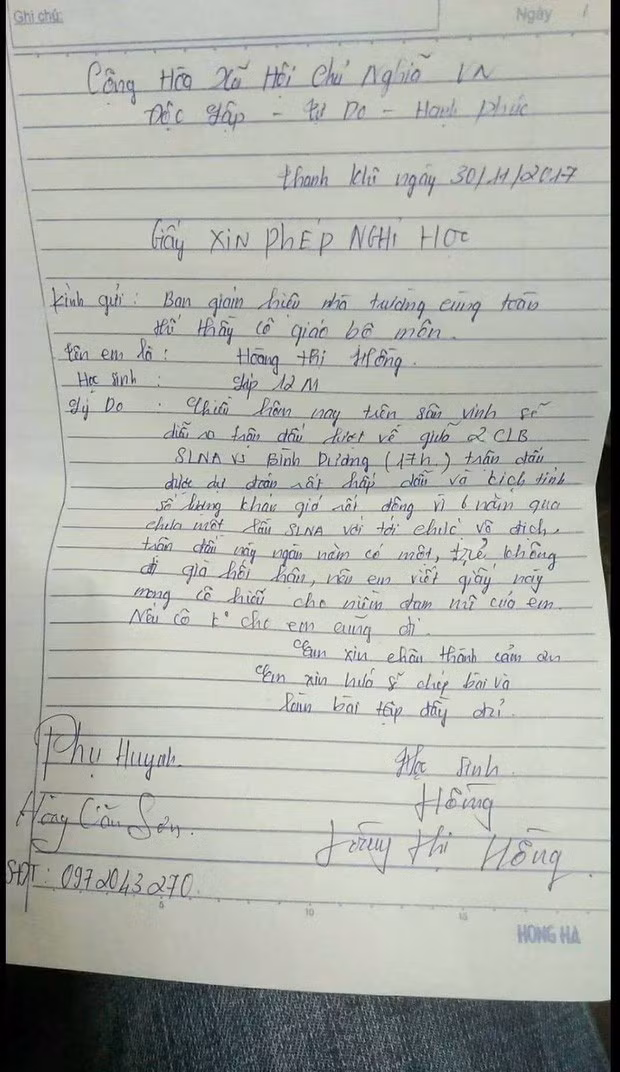 Ghi chú:
Ngày /
Cộng Hòa Xã Hội Chủ Nghĩa VN
Độc Lập - Tự Do - Hạnh phúc
Thanh khê ngày 30/11/2017
Giấy XIN PHÉP NGHỈ HỌC
kính gửi: Ban giám hiệu nhà trường cùng toàn
thể thầy cô giáo bộ môn.
tên em là : Hoàng thị Hồng.
Học sinh : lớp 12M
Lý Do : Chiều hôm nay trên sân vinh sẽ
diễn ra trận đấu lượt về giữa 2 CLB
SLNA vs Bình Dương (17h.) trận đấu
được dự đoán rất hấp dẫn và kịch tính
số lượng khán giả rất đông vì 6 năm qua
chưa một lần SLNA với tới chức vô địch.
trận đấu này ngàn năm có một, trẻ không
đi già hối hận, nên em viết giấy này
mong cô hiểu cho niềm đam mê của em.
Nếu cô k° cho em cũng đi.
Em xin chân thành cảm ơn
Em xin hứa sẽ chép bài và
làm bài tập đầy đủ.
Phụ Huynh. Học sinh.
Hồng
Hoàng Sơn. Hoàng thị Hồng.
SĐT: 0972043270.
5 10 15
HONG HA